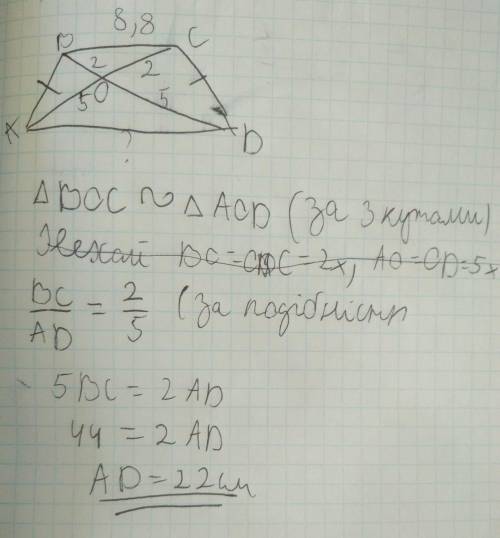 8,8
B C
2 2
O
5 5
A D
?
△BOC ∾ △AOD (за 3 кутами)
Нехай BO = OC = 2x, AO = OD = 5x
BC/AD = 2/5 (за подібністю
5BC = 2AD
44 = 2AD
AD = 22см